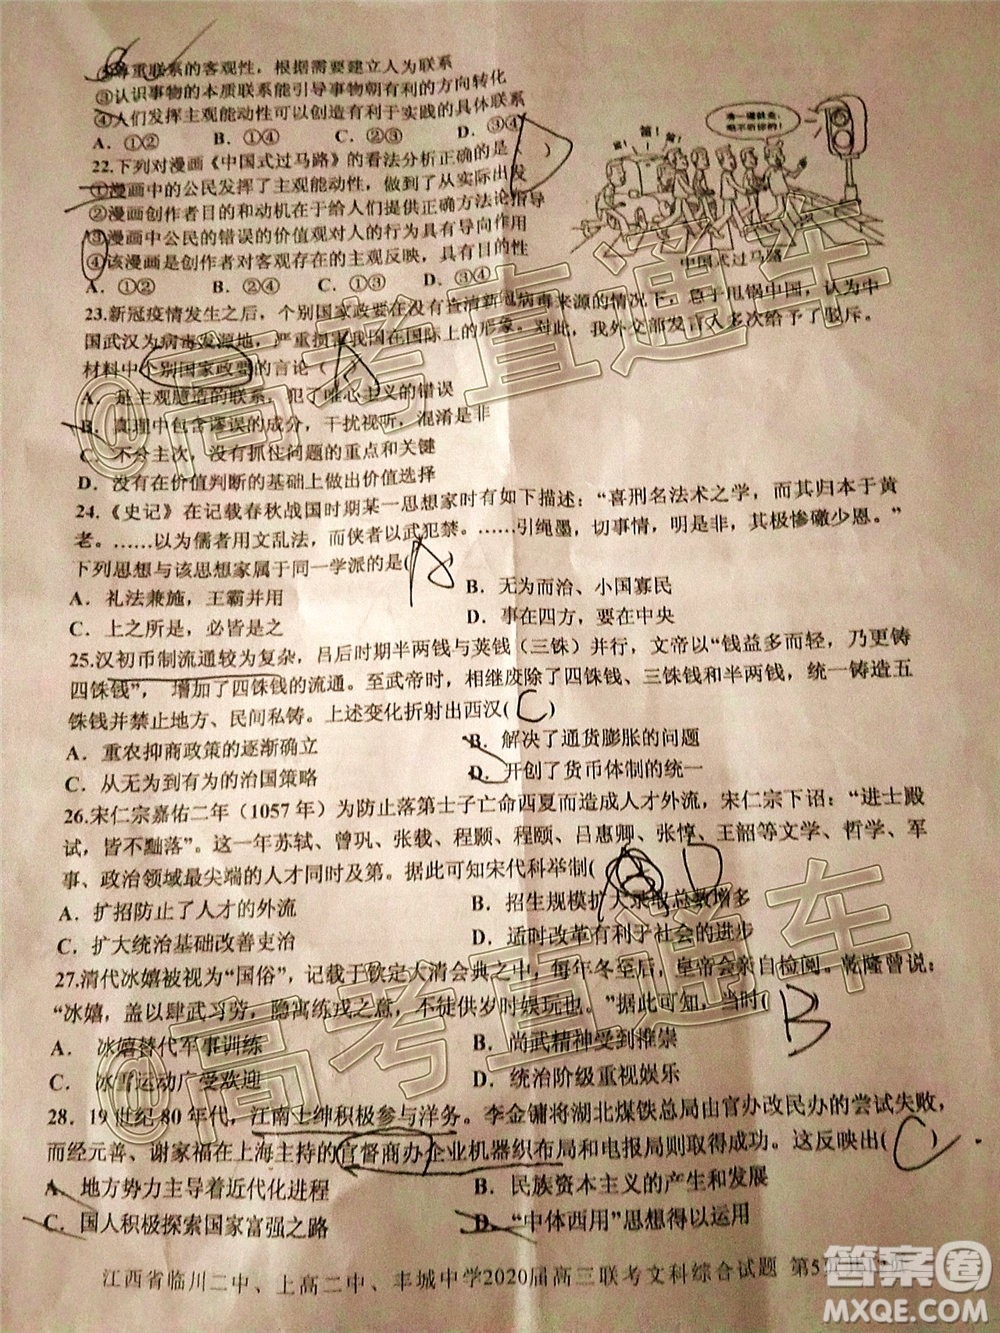 ②尊重联系的客观性，根据需要建立人为联系
③认识事物的本质联系能引导事物朝有利的方向转化
④人们发挥主观能动性可以创造有利于实践的具体联系
A．①② B．①④ C．②③ D．③④
22.下列对漫画《中国式过马路》的看法分析正确的是（ ）
①漫画中的公民发挥了主观能动性，做到了从实际出发
②漫画创作者目的和动机在于给人们提供正确方法论指导
③漫画中公民的错误的价值观对人的行为具有导向作用
④该漫画是创作者对客观存在的主观反映，具有目的性
A．①② B．①③ C．②④ D．③④
凑一堆就走，
笛！
笛！
中国式过马路
23.新冠疫情发生之后，个别国家政要在没有查清新冠病毒来源的情况下，急于甩锅中国，认为中
国武汉为病毒发源地，严重损害我国在国际上的形象。对此，我外交部发言人多次给予了驳斥。
材料中个别国家政要的言论（ ）
A
A．是主观臆造的联系，犯了唯心主义的错误
B．真理中包含谬误的成分，干扰视听，混淆是非
C．不分主次，没有抓住问题的重点和关键
D．没有在价值判断的基础上做出价值选择
24.《史记》在记载春秋战国时期某一思想家时有如下描述：“喜刑名法术之学，而其归本于黄
老。……以为儒者用文乱法，而侠者以武犯禁。……引绳墨，切事情，明是非，其极惨礉少恩。”
下列思想与该思想家属于同一学派的是( )
A
A．礼法兼施，王霸并用 B．无为而治、小国寡民
C．上之所是，必皆是之 D．事在四方，要在中央
25.汉初币制流通较为复杂，吕后时期半两钱与荚钱（三铢）并行，文帝以“钱益多而轻，乃更铸
四铢钱”，增加了四铢钱的流通。至武帝时，相继废除了四铢钱、三铢钱和半两钱，统一铸造五
铢钱并禁止地方、民间私铸。上述变化折射出西汉( C )
A．重农抑商政策的逐渐确立 B．解决了通货膨胀的问题
C．从无为到有为的治国策略 D．开创了货币体制的统一
26.宋仁宗嘉佑二年（1057 年）为防止落第士子亡命西夏而造成人才外流，宋仁宗下诏：“进士殿
试，皆不黜落”。这一年苏轼、曾巩、张载、程颢、程颐、吕惠卿、张惇、王韶等文学、哲学、军
事、政治领域最尖端的人才同时及第。据此可知宋代科举制( )
D
A．扩招防止了人才的外流 B．招生规模扩大录取总数增多
C．扩大统治基础改善吏治 D．适时改革有利于社会的进步
27.清代冰嬉被视为“国俗”，记载于钦定大清会典之中，每年冬至后，皇帝会亲自检阅。乾隆曾说：
“冰嬉，盖以肆武习劳，隐寓练戎之意，不徒供岁时娱玩也。”据此可知，当时( )
B
A．冰嬉替代军事训练 B．尚武精神受到推崇
C．冰雪运动广受欢迎 D．统治阶级重视娱乐
28．19 世纪 80 年代，江南士绅积极参与洋务。李金镛将湖北煤铁总局由官办改民办的尝试失败，
而经元善、谢家福在上海主持的官督商办企业机器织布局和电报局则取得成功。这反映出( C )
A．地方势力主导着近代化进程 B．民族资本主义的产生和发展
C．国人积极探索国家富强之路 D．“中体西用”思想得以运用
江西省临川二中、上高二中、丰城中学2020届高三联考文科综合试题 第5页
@高考直通车
@高考直通车
答案圈
MXQE.COM